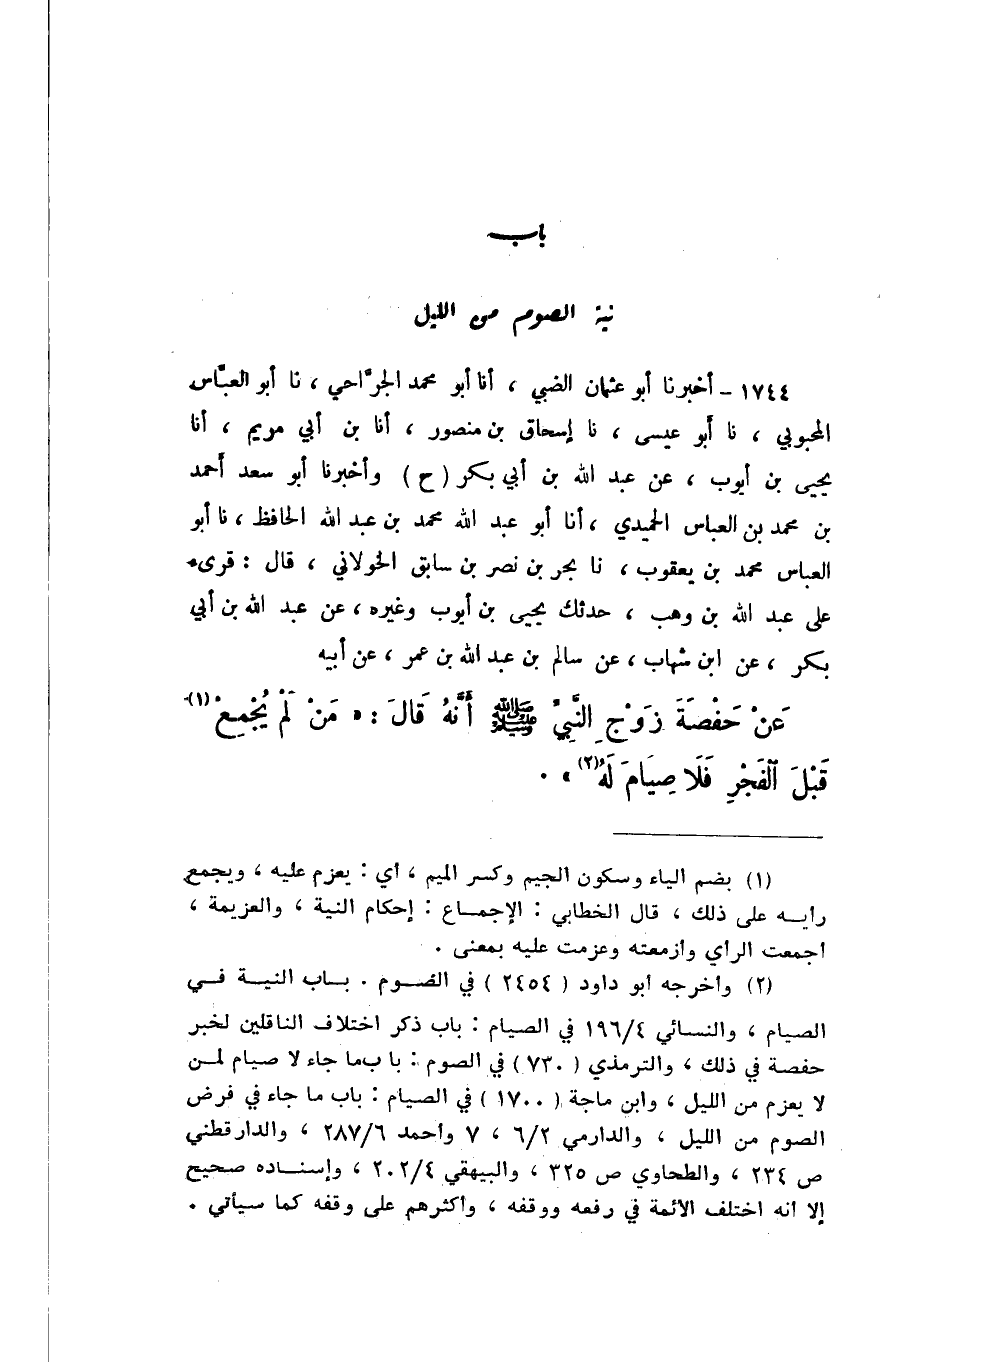 باب
نية الصوم من الليل
١٧٤٤ - أخبرنا أبو عثمان الضبي ، أنا أبو محمد الجرَّاحي ، نا أبو العبَّاس
المحبوبي ، نا أبو عيسى ، نا إسحاق بن منصور ، أنا بن أبي مريم ، أنا
يحيى بن أيوب ، عن عبد الله بن أبي بكر ( ح ) وأخبرنا أبو سعد أحمد
بن محمد بن العباس الحميدي ، أنا أبو عبد الله محمد بن عبد الله الحافظ ، نا أبو
العباس محمد بن يعقوب ، نا بحر بن نصر بن سابق الخولاني ، قال : قرىء
على عبد الله بن وهب ، حدثك يحيى بن أيوب وغيره ، عن عبد الله بن أبي
بكر ، عن ابن شهاب ، عن سالم بن عبد الله بن عمر ، عن أبيه
عَنْ حَفْصَةَ زَوْجِ النَّبِيِّ ﷺ أَنَّهُ قَالَ : « مَنْ لَمْ يُجْمِعْ (١)
قَبْلَ الفَجْرِ فَلَا صِيَامَ لَهُ (٢) » .
(١) بضم الياء وسكون الجيم وكسر الميم ، أي : يعزم عليه ، ويجمع
رأيــه على ذلك ، قال الخطابي : الإجمــاع : إحكام النية ، والعزيمة ،
أجمعت الرأي وأزمعته وعزمت عليه بمعنى .
(٢) وأخرجه أبو داود ( ٢٤٥٤ ) في الصــوم . بــاب النيــة فــي
الصيام ، والنسائي ١٩٦/٤ في الصيام : باب ذكر اختلاف الناقلين لخبر
حفصة في ذلك ، والترمذي ( ٧٣٠ ) في الصوم : با ب‌ما جاء لا صيام لمن
لا يعزم من الليل ، وابن ماجة ( ١٧٠٠ ) في الصيام : باب ما جاء في فرض
الصوم من الليل ، والدارمي ٦/٢ ، ٧ وأحمد ٢٨٧/٦ ، والدارقطني
ص ٢٣٤ ، والطحاوي ص ٣٢٥ ، والبيهقي ٢٠٢/٤ ، وإسنــاده صحيح
إلا أنه اختلف الأئمة في رفعه ووقفه ، وأكثرهم على وقفه كما سيأتي .